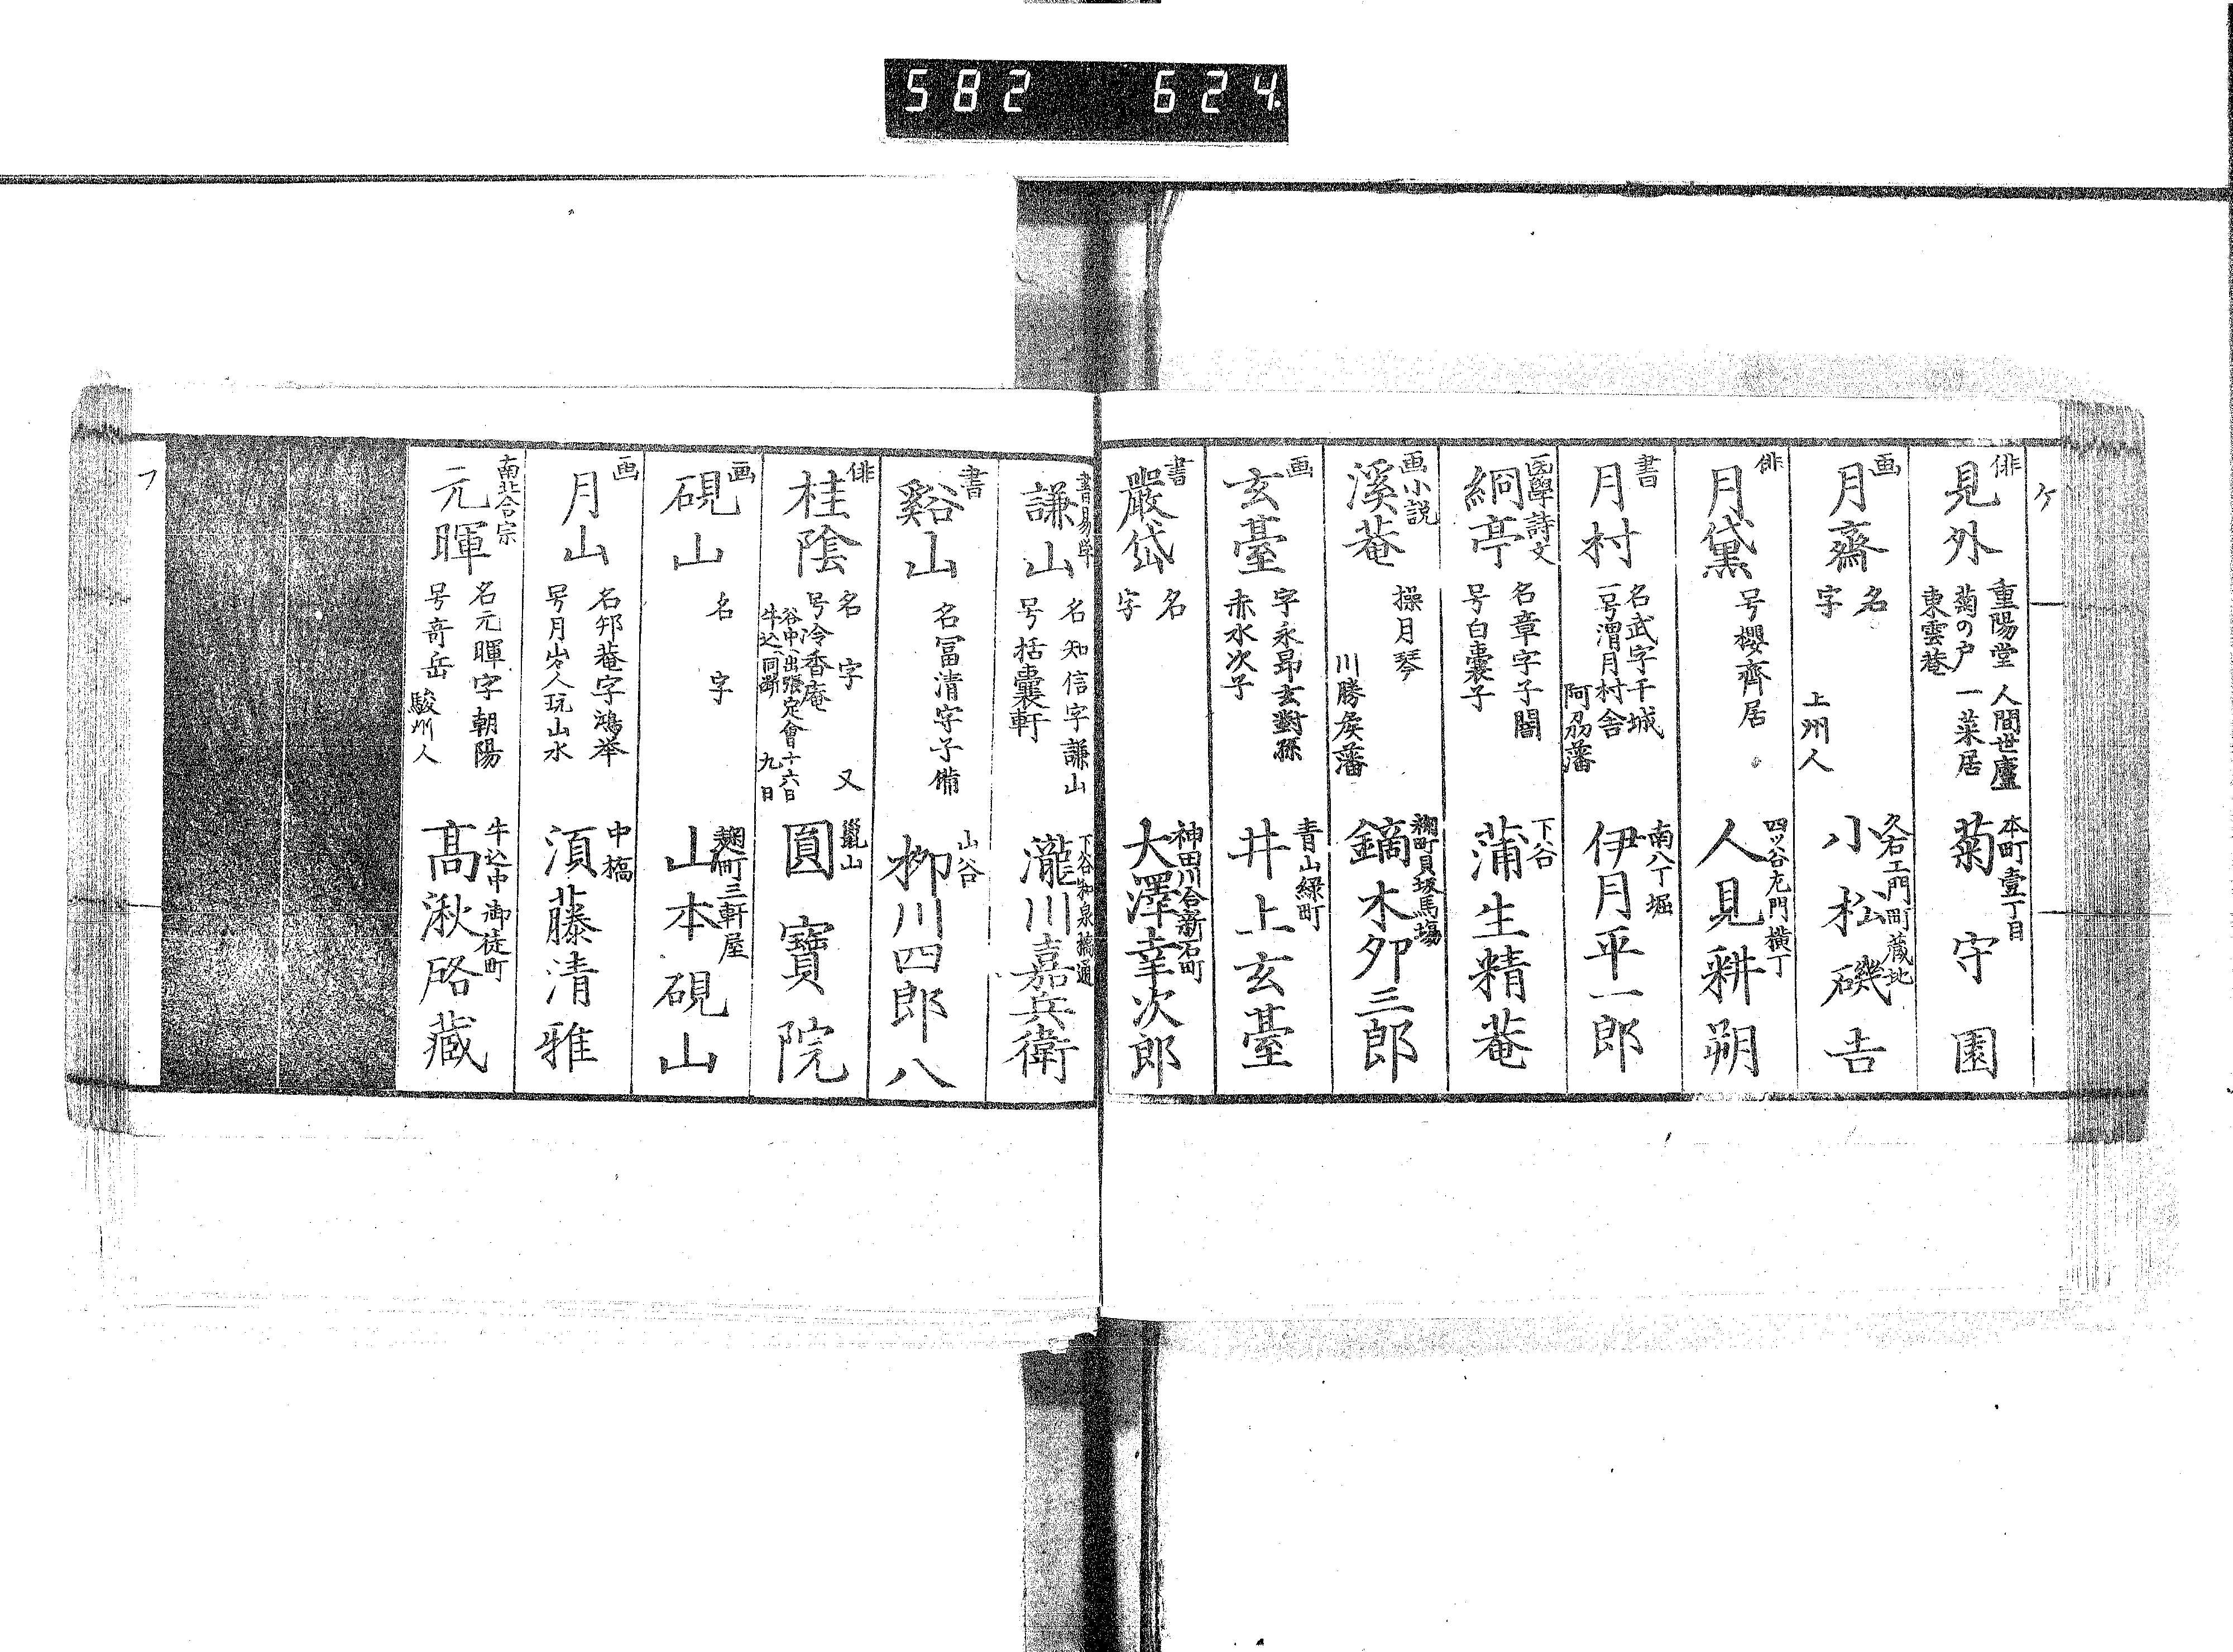 582 624
ケ
俳
見外
重陽堂 人間世廬
菊の戸 一菜居
東雲菴
本町壹丁目
菊守園
画
月齋
名
字
上州人
久右エ門町蔵地
小松磯吉
俳
月黛
号櫻齊居
四ッ谷左門横丁
人見耕朔
書
月村
名武字干城
一号渭月村舎
阿刕藩
南八丁堀
伊月平一郎
医學詩文
絅亭
名章字子闇
号白囊子
下谷
蒲生精菴
画小説
溪菴
操月琴
川勝矦藩
麹町貝坂馬場
鏑木夘三郎
画
玄臺
字永昻玄對孫
赤水次子
青山緑町
井上玄臺
書
嚴岱
名
字
神田川合新石町
大澤幸次郎
書易学
謙山
名知信字謙山
号括囊軒
下谷和泉橋通
瀧川嘉兵衛
書
谿山
名冨清字子備
山谷
栁川四郎八
俳
桂陰
名 字 又
号冷香庵
谷中へ出張定會十六日
牛込へ同断 九日
巣山
圓寶院
画
硯山
名 字
麹町三軒屋
山本硯山
画
月山
名邦菴字鴻举
号月山岑人玩山水
中橋
須藤清雅
南北合宗
元暉
名元暉字朝陽
号竒岳
駿州人
牛込中御徒町
髙湫啓藏
フ